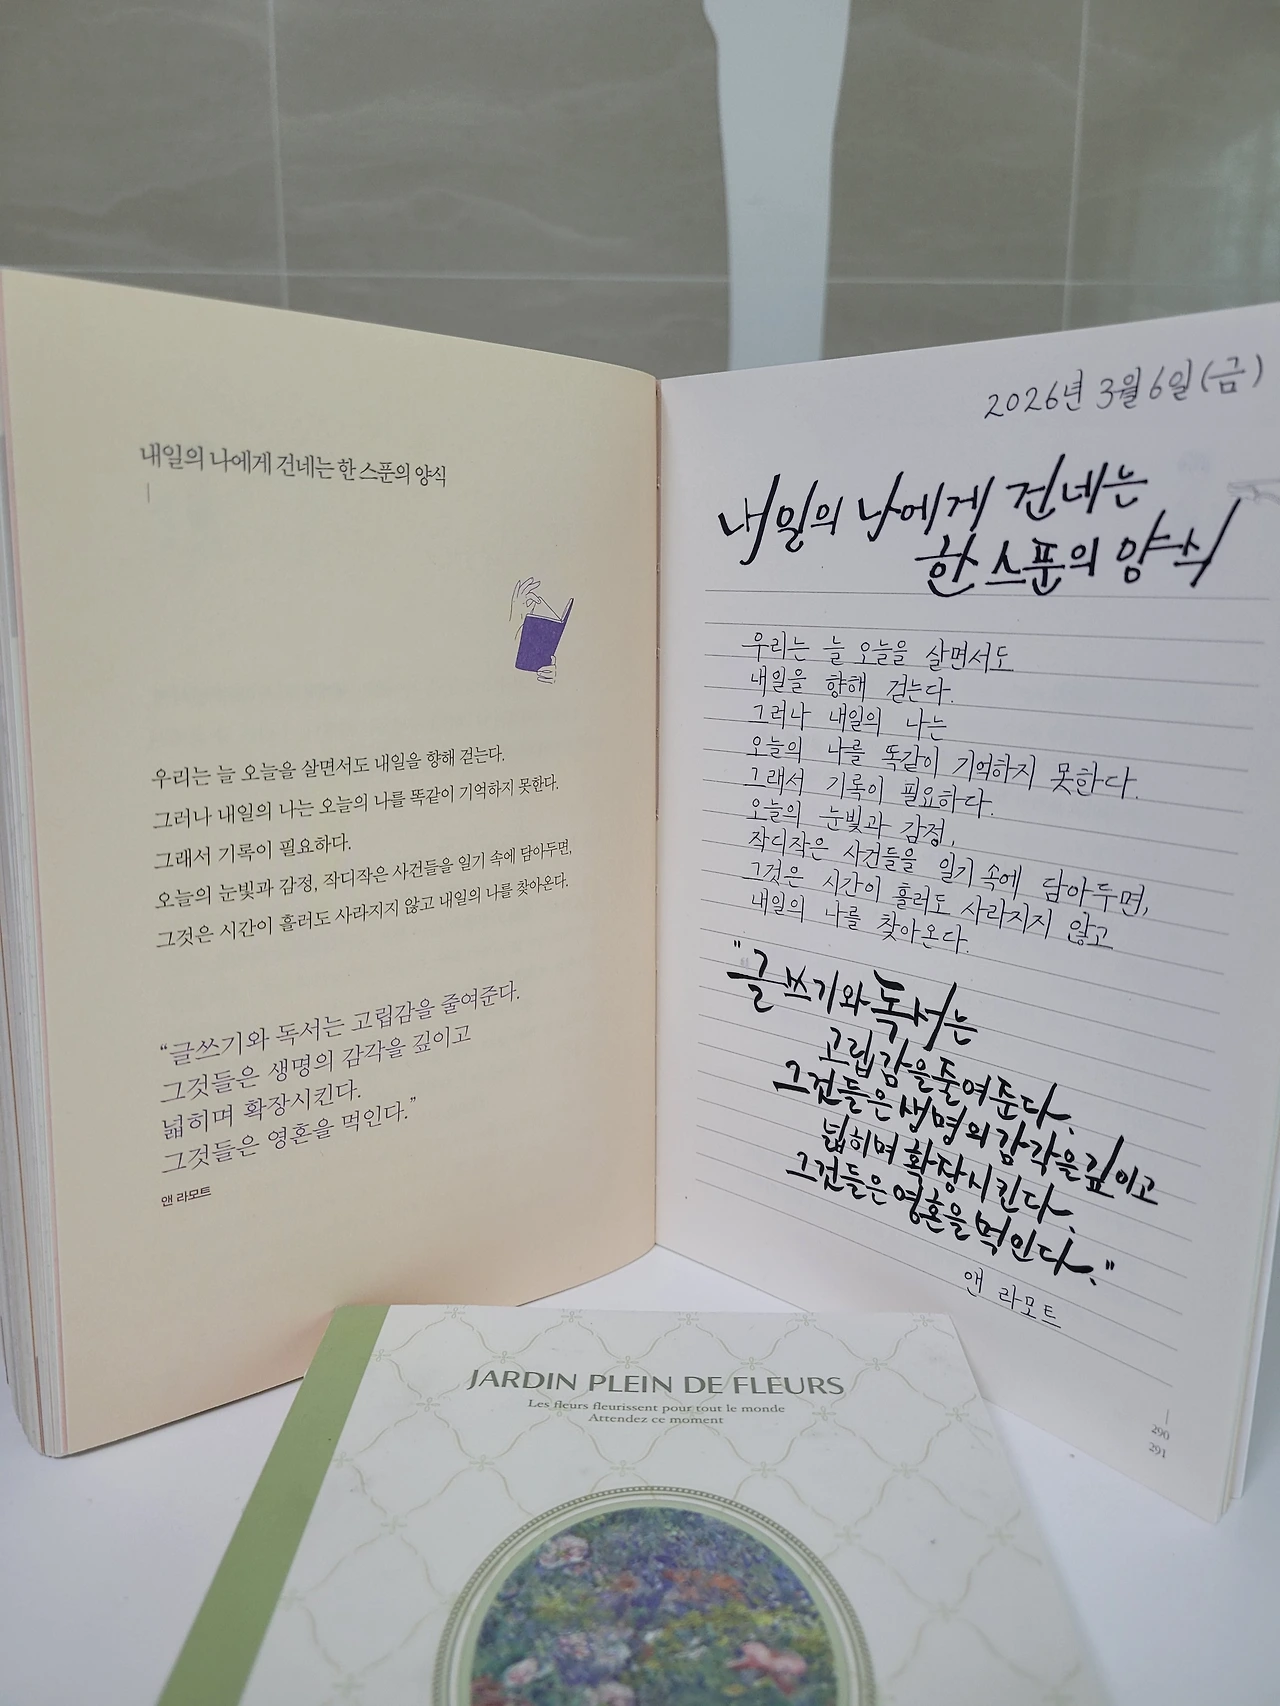 내일의 나에게 건네는 한 스푼의 양식
우리는 늘 오늘을 살면서도 내일을 향해 걷는다.
그러나 내일의 나는 오늘의 나를 똑같이 기억하지 못한다.
그래서 기록이 필요하다.
오늘의 눈빛과 감정, 작디작은 사건들을 일기 속에 담아두면,
그것은 시간이 흘러도 사라지지 않고 내일의 나를 찾아온다.
“글쓰기와 독서는 고립감을 줄여준다.
그것들은 생명의 감각을 깊이고
넓히며 확장시킨다.
그것들은 영혼을 먹인다.”
앤 라모트
2026년 3월 6일(금)
내일의 나에게 건네는
한 스푼의 양식
우리는 늘 오늘을 살면서도
내일을 향해 걷는다.
그러나 내일의 나는
오늘의 나를 똑같이 기억하지 못한다.
그래서 기록이 필요하다.
오늘의 눈빛과 감정,
작디작은 사건들을 일기 속에 담아두면,
그것은 시간이 흘러도 사라지지 않고
내일의 나를 찾아온다.
"글쓰기와 독서는
고립감을 줄여준다.
그것들은 생명의 감각을 깊이고
넓히며 확장시킨다.
그것들은 영혼을 먹인다."
앤 라모트
290
291
JARDIN PLEIN DE FLEURS
Les fleurs fleurissent pour tout le monde
Attendez ce moment